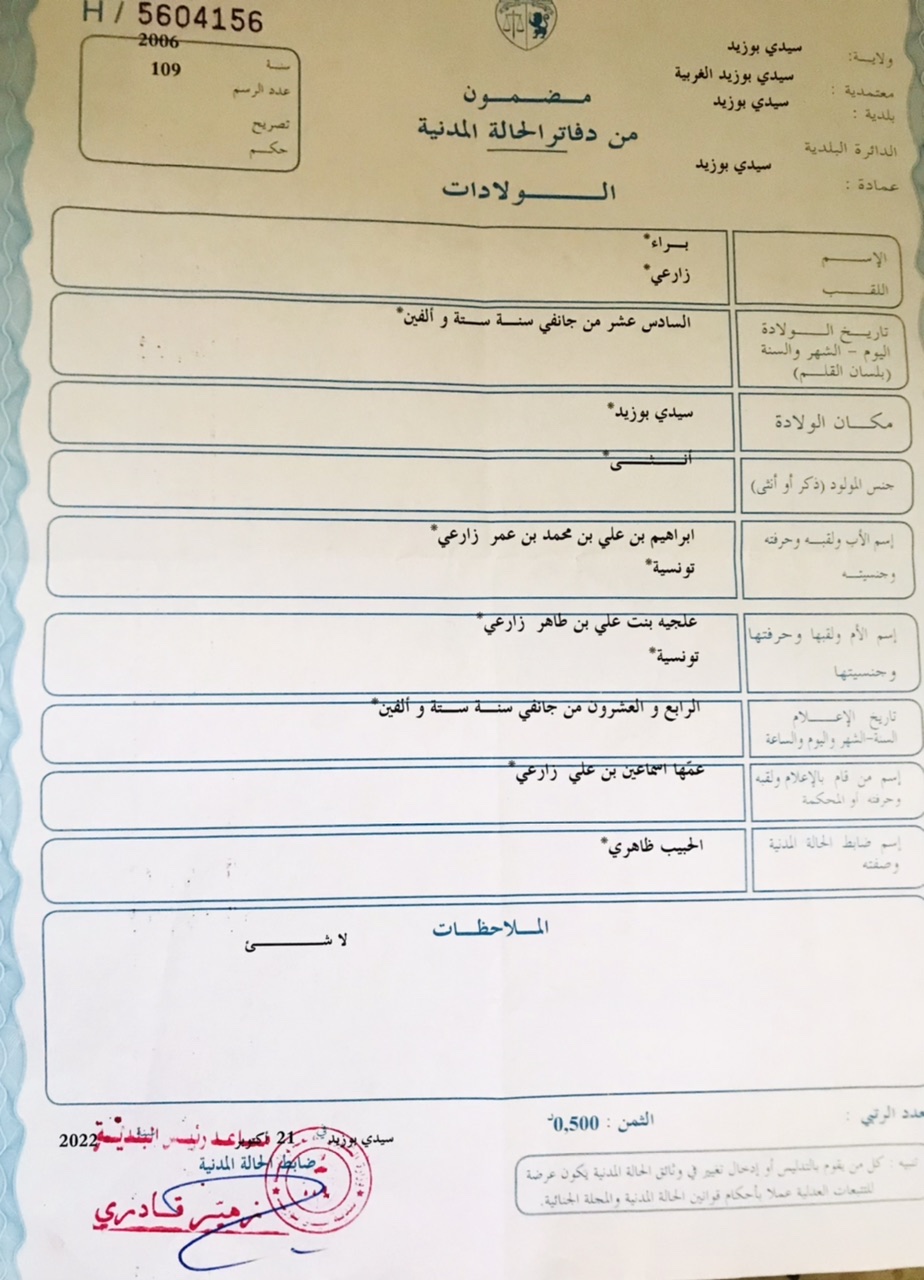 H / 5604156
ولاية: سيدي بوزيد
معتمدية : سيدي بوزيد الغربية
بلدية : سيدي بوزيد
الدائرة البلدية
عمادة : سيدي بوزيد
سنة 2006
عدد الرسم 109
تصريح
حكم
مضمون
من دفاتر الحالة المدنية
الولادات
الإسم براء*
اللقب زارعي*
تاريخ الولادة السادس عشر من جانفي سنة ستة و ألفين*
اليوم - الشهر والسنة
(بلسان القلم)
مكان الولادة سيدي بوزيد*
جنس المولود (ذكر أو أنثى) أنثى*
إسم الأب ولقبه وحرفته ابراهيم بن علي بن محمد بن عمر زارعي*
وجنسيته تونسية*
إسم الأم ولقبها وحرفتها علجيه بنت علي بن طاهر زارعي*
وجنسيتها تونسية*
تاريخ الإعلام الرابع و العشرون من جانفي سنة ستة و ألفين*
السنة-الشهر واليوم والساعة
إسم من قام بالإعلام ولقبه عمّها اسماعين بن علي زارعي*
وحرفته أو المحكمة
إسم ضابط الحالة المدنية الحبيب ظاهري*
وصفته
الملاحظات
لا شئ
عدد الرتبي :
الثمن : 0,500د
تنبيه : كل من يقوم بالتدليس أو إدخال تغيير في وثائق الحالة المدنية يكون عرضة
للتتبعات العدلية عملا بأحكام قوانين الحالة المدنية والمجلة الجنائية.
سيدي بوزيد في 21 أكتوبر 2022
مساعد رئيس البلدية
ضابط الحالة المدنية
زهير قادري